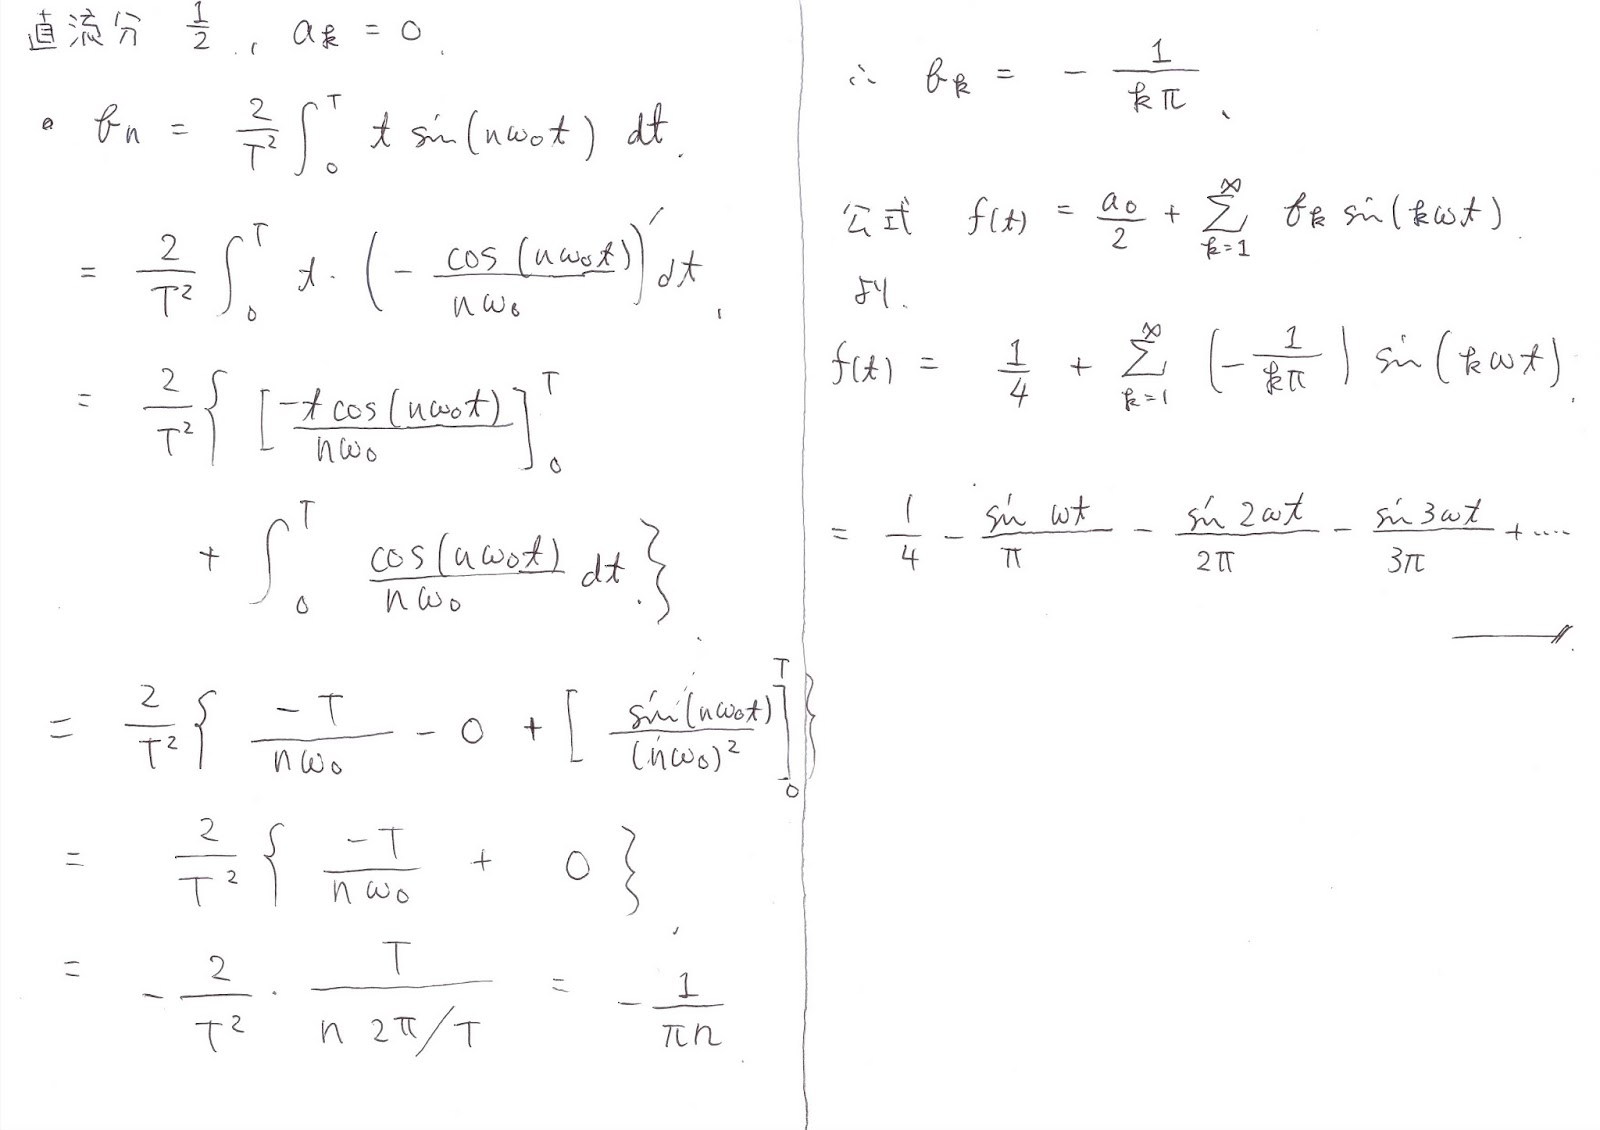 直流分 1/2 , a_k = 0.
• b_n = 2/T² ∫_0^T t sin(nω₀t) dt.
= 2/T² ∫_0^T t·(− cos(nω₀t)/nω₀)′ dt,
= 2/T² { [−t cos(nω₀t)/nω₀]_0^T
+ ∫_0^T cos(nω₀t)/nω₀ dt.}
= 2/T² { −T/nω₀ − 0 + [sin(nω₀t)/(nω₀)²]_0^T }
= 2/T² { −T/nω₀ + 0 },
= − 2/T² · T/(n 2π/T) = − 1/πn
∴ b_k = − 1/kπ,
公式 f(t) = a₀/2 + Σ_{k=1}^∞ b_k sin(kωt).
より.
f(t) = 1/4 + Σ_{k=1}^∞ (− 1/kπ) sin(kωt).
= 1/4 − sin ωt/π − sin 2ωt/2π − sin 3ωt/3π + ····